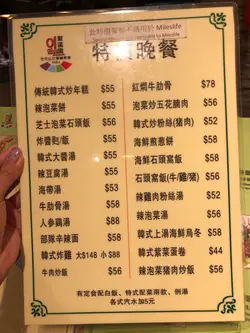 此特價餐不適用於 Mileslife
to Mileslife
特價晚餐
傳統韓式炒年糕 $55
辣泡菜餅 $55
芝士泡菜石頭飯 $56
炸醬乸/飯 $56
韓式大醬湯 $55
辣豆腐湯 $55
海帶湯 $53
牛肋骨湯 $55
人參鷄湯 $88
部隊辛辣面 $58
韓式炸雞 大$148 小 $88
牛肉炒飯 $56
紅燜牛肋骨 $78
泡菜炒五花腩肉 $56
韓式炒粉絲(豬肉) $56
海鮮煎蔥餅 $56
海鮮石窩飯 $56
石頭窩飯(牛/雞/豬) $56
辣雞肉粉絲湯 $52
辣泡菜湯 $56
韓式上湯海鮮烏冬 $58
韓式紫菜蛋卷 $44
辣泡菜豬肉炒飯 $56
有定食配白飯、特式配菜兩款、例湯
各式汽水加5元